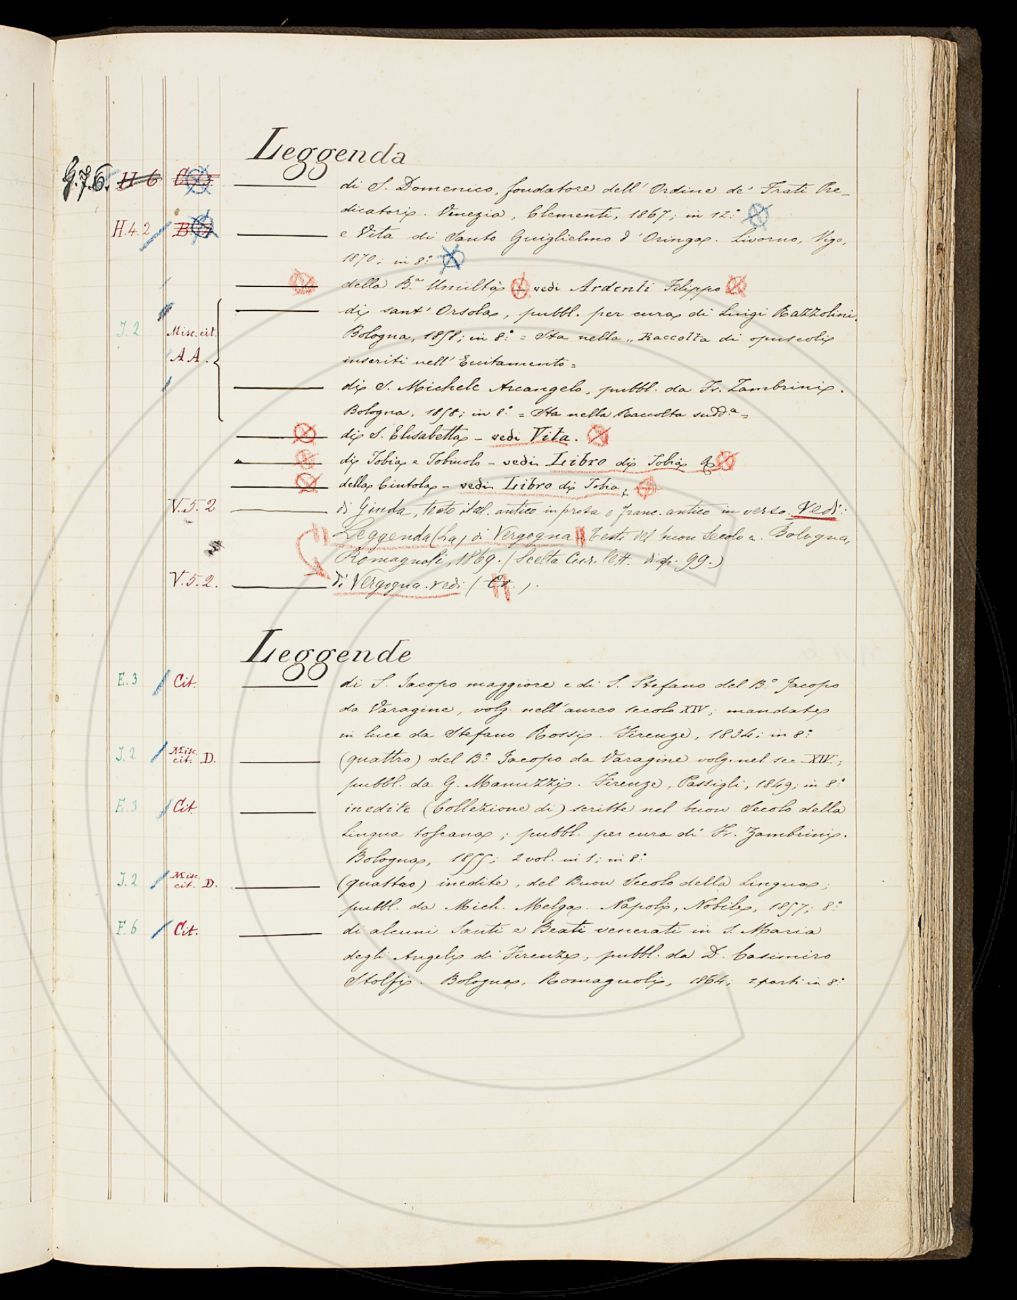 Leggenda
G.7.6. H 6 di S. Domenico, fondatore dell' Ordine de' Frati Pre-
dicatori. Venezia, Clementi, 1867; in 12.°
H 4. 2 e Vita di Santo Guiglielmo d'Oringa. Livorno, Vigo,
1870; in 8.°
della B.a Umiltà - vedi Ardenti Filippo
di sant' Orsola, pubbl. per cura di Luigi Razzolini.
J. 2 Misc. cit. Bologna, 1858; in 8.° = Sta nella "Raccolta di opuscoli
A A. inseriti nell' Eccitamento =
di S. Michele Arcangelo, pubbl. da Fr. Zambrini.
Bologna, 1858; in 8.° = Sta nella Raccolta sudd.a =
di S. Elisabetta - vedi Vita.
di Tobia e Tobiuolo - vedi Libro di Tobia
della Cintola - vedi Libro di Tobia
V. 5. 2 di Giuda, testo ital. antico in prosa e franc. antico in verso. Vedi:
Leggenda (La) di Vergogna Testi del buon Secolo. Bologna,
Romagnoli, 1869. (Scelta Cur. lett. disp. 99.)
V. 5. 2. di Vergogna. vedi
Leggende
E. 3 Cit. di S. Jacopo maggiore e di S. Stefano del B.° Jacopo
da Varagine, volg. nell' aureo secolo XIV; mandate
in luce da Stefano Rossi. Firenze, 1834; in 8.°
J. 2 Misc. cit. D. (quattro) del B.° Jacopo da Varagine volg. nel sec. XIV;
pubbl. da G. Manuzzi. Firenze, Passigli, 1849; in 8.°
E. 3 Cit. inedite (Collezione di) scritte nel buon Secolo della
Lingua toscana; pubbl. per cura di Fr. Zambrini.
Bologna, 1855; 2 vol. in 1; in 8.°
J. 2 Misc. cit. D. (quattro) inedite, del Buon Secolo della Lingua;
pubbl. da Mich. Melga. Napoli, Nobile, 1857; 8.°
F. 6 Cit. di alcuni Santi e Beati venerati in S. Maria
degli Angeli di Firenze, pubbl. da D. Casimiro
Stolfi. Bologna, Romagnoli, 1864; 2 parti in 8.°